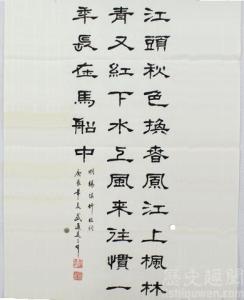 江頭秋色換春風江上楓林
青又紅下水上風来往慣一
年長在馬船中
明楊慎竹枝詞